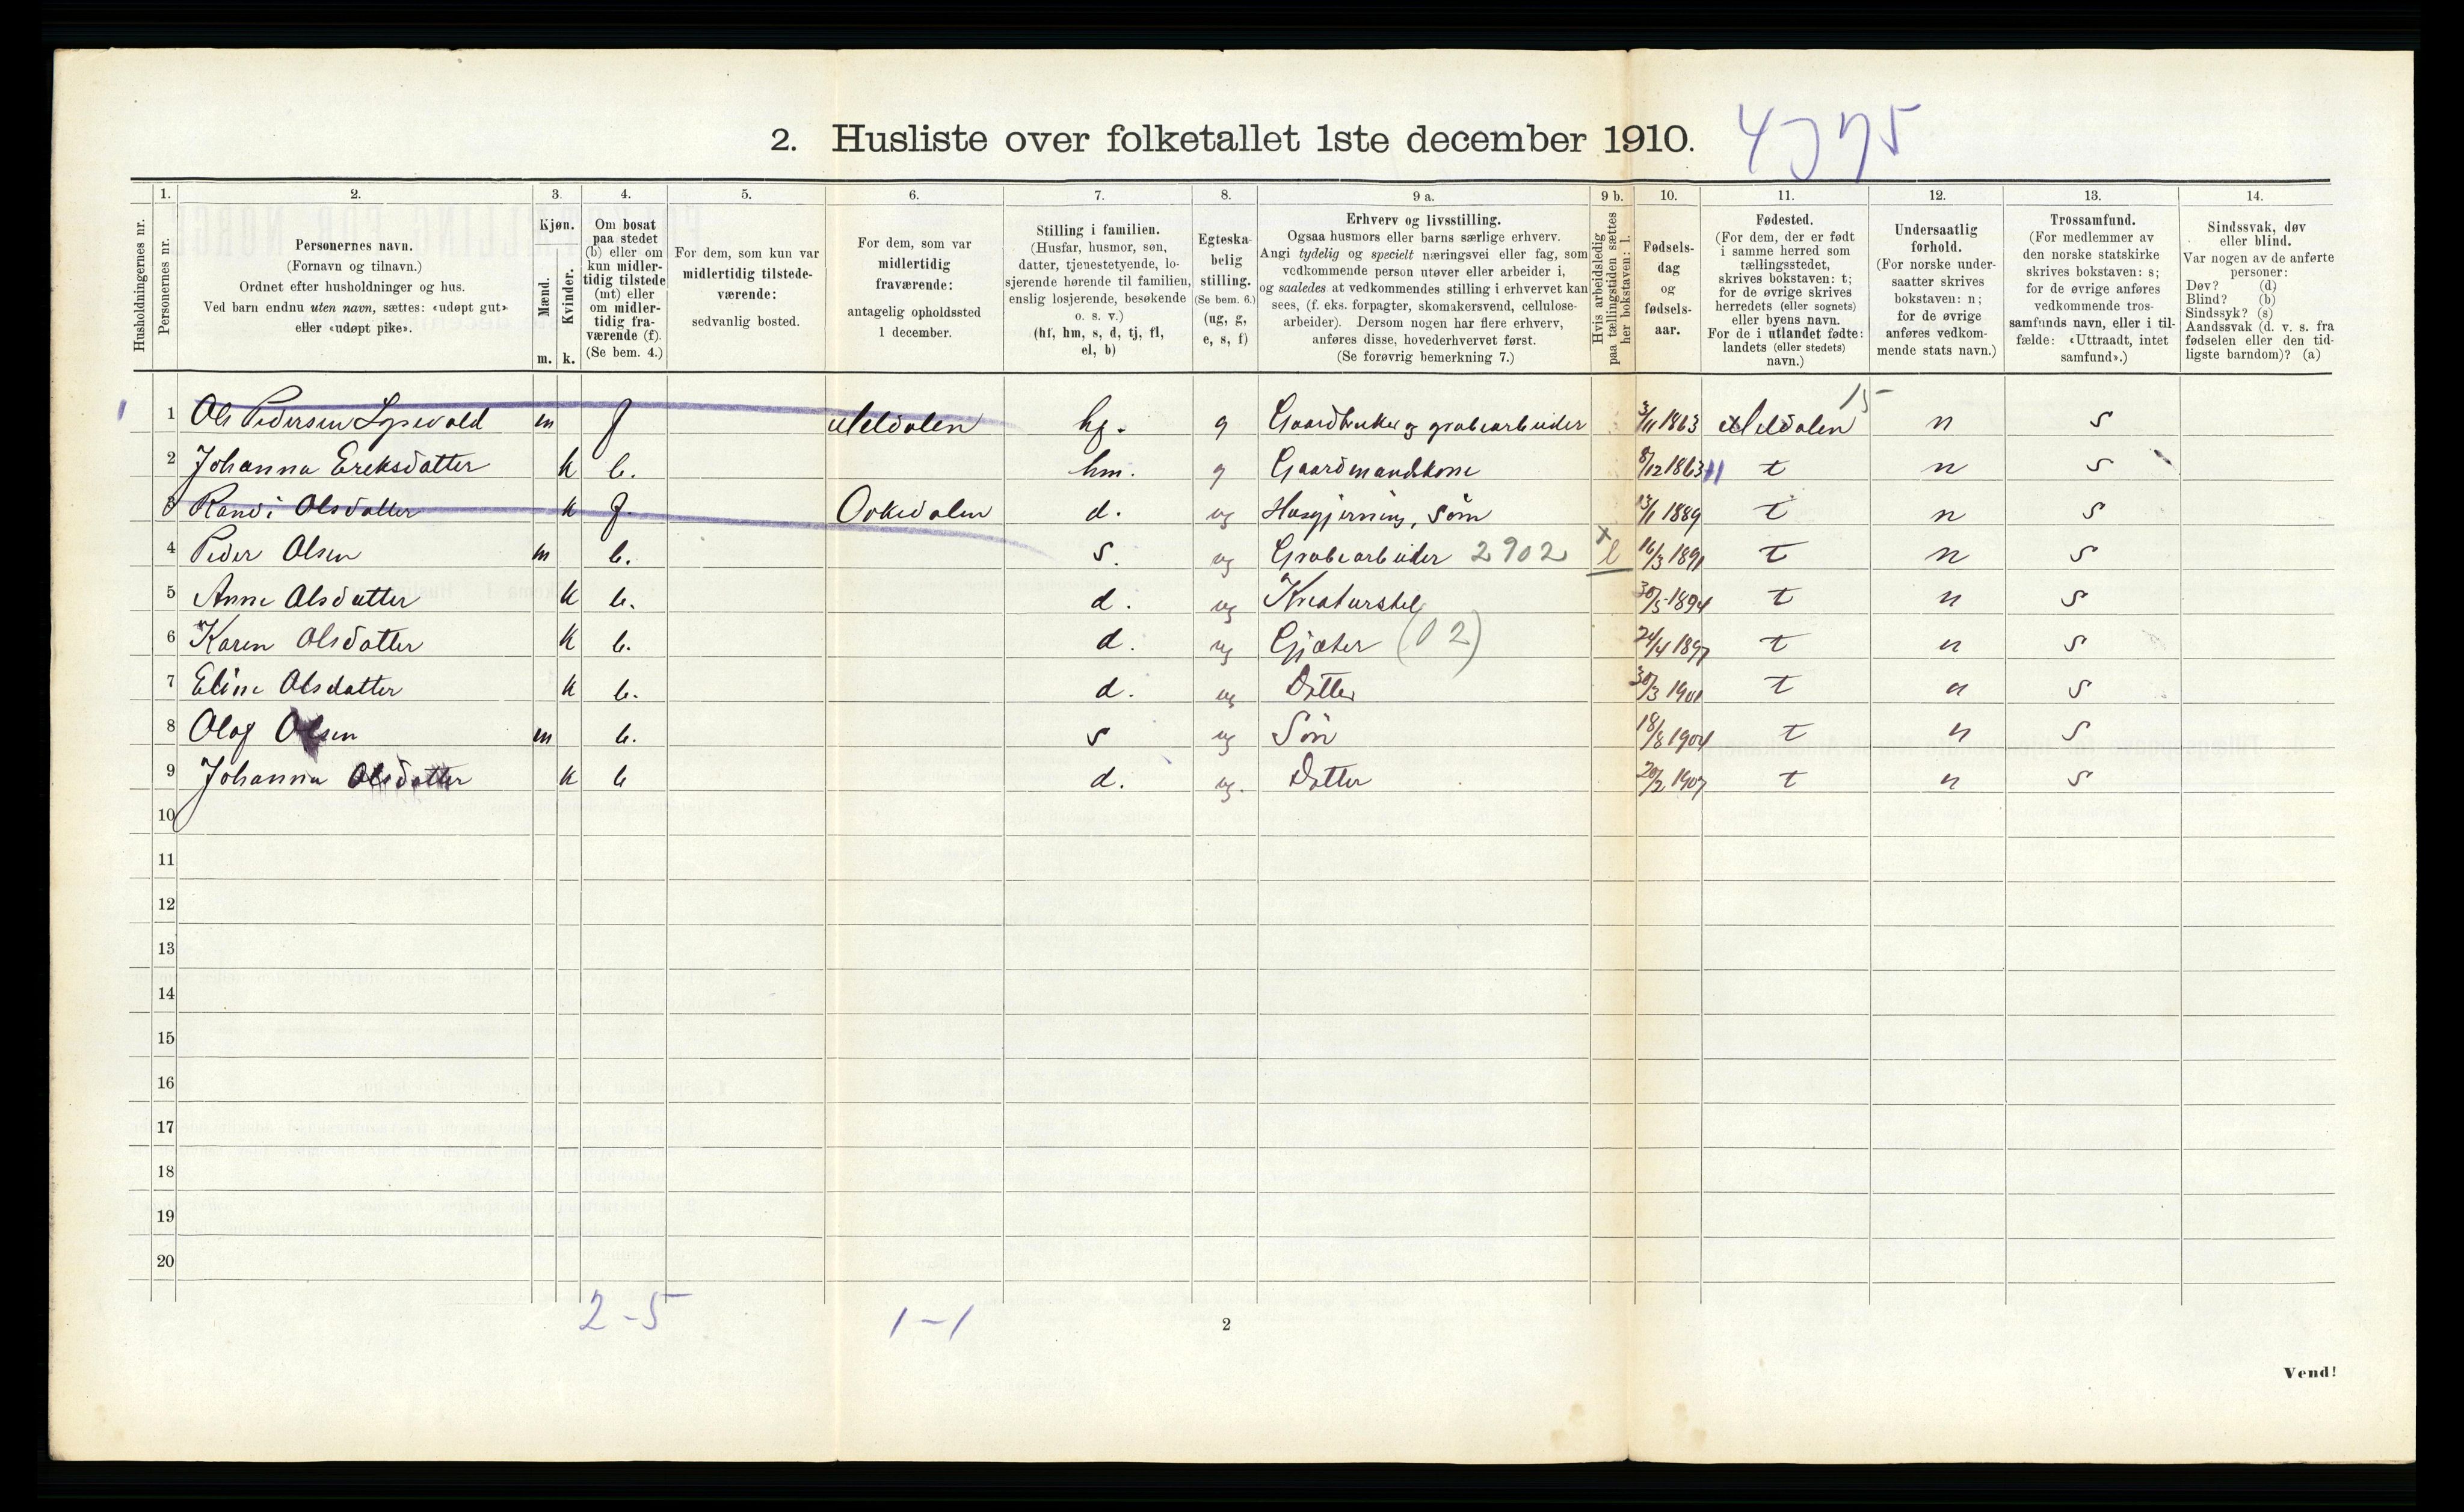 2. Husliste over folketallet 1ste december 1910.
1. 2. 3. 4. 5. 6. 7. 8. 9 a. 9 b. 10. 11. 12. 13. 14.
Husholdningernes nr.
Personernes nr.
Personernes navn.
(Fornavn og tilnavn.)
Ordnet efter husholdninger og hus.
Ved barn endnu uten navn, sættes: «udøpt gut»
eller «udøpt pike».
Kjøn.
Mænd.
Kvinder.
m. k.
Om bosat
paa stedet
(b) eller om
kun midler-
tidig tilstede
(mt) eller
om midler-
tidig fra-
værende (f).
(Se bem. 4.)
For dem, som kun var
midlertidig tilstede-
værende:
sedvanlig bosted.
For dem, som var
midlertidig
fraværende:
antagelig opholdssted
1 december.
Stilling i familien.
(Husfar, husmor, søn,
datter, tjenestetyende, lo-
sjerende hørende til familien,
enslig losjerende, besøkende
o. s. v.)
(hf, hm, s, d, tj, fl,
el, b)
Egteska-
belig
stilling.
(Se bem. 6.)
(ug, g,
e, s, f)
Erhverv og livsstilling.
Ogsaa husmors eller barns særlige erhverv.
Angi tydelig og specielt næringsvei eller fag, som
vedkommende person utøver eller arbeider i,
og saaledes at vedkommendes stilling i erhvervet kan
sees, (f. eks. forpagter, skomakersvend, cellulose-
arbeider). Dersom nogen har flere erhverv,
anføres disse, hovederhvervet først.
(Se forøvrig bemerkning 7.)
Hvis arbeidsledig
paa tællingstiden sættes
her bokstaven: l.
Fødsels-
dag
og
fødsels-
aar.
Fødested.
(For dem, der er født
i samme herred som
tællingsstedet,
skrives bokstaven: t;
for de øvrige skrives
herredets (eller sognets)
eller byens navn.
For de i utlandet fødte:
landets (eller stedets)
navn.)
Undersaatlig
forhold.
(For norske under-
saatter skrives
bokstaven: n;
for de øvrige
anføres vedkom-
mende stats navn.)
Trossamfund.
(For medlemmer av
den norske statskirke
skrives bokstaven: s;
for de øvrige anføres
vedkommende tros-
samfunds navn, eller i til-
fælde: «Uttraadt, intet
samfund».)
Sindssvak, døv
eller blind.
Var nogen av de anførte
personer:
Døv? (d)
Blind? (b)
Sindssyk? (s)
Aandssvak (d. v. s. fra
fødselen eller den tid-
ligste barndom)? (a)
15
1 1 Ole Pedersen m f Meldalen hf. g Gaardbruker og grubearbeider 3/11 1863 Meldalen n s
2 Johanna Ereksdatter k b. hm. g Gaardmandskone 8/12 1863 11 t n s
3 Randi Olsdatter k f. Orkedalen d. ug Husgjerning, Søm 1889 t n s
4 Peder Olsen m b. s. ug Grubearbeider 2902 x l 16/3 1891 t n s
5 Anne Olsdatter k b. d. ug Kreaturstel 30/5 1894 t n s
6 Karen Olsdatter k b. d. ug Gjæter (02) 24/4 1897 t n s
7 Eline Olsdatter k b. d. ug Datter 30/3 1901 t n s
8 Olaf Olsen m b. s ug Søn 18/8 1904 t n s
9 Johanna Olsdatter k b d. ug. Datter 20/2 1907 t n s
10
11
12
13
14
15
16
17
18
19
20
2-5 1-1
2
Vend!